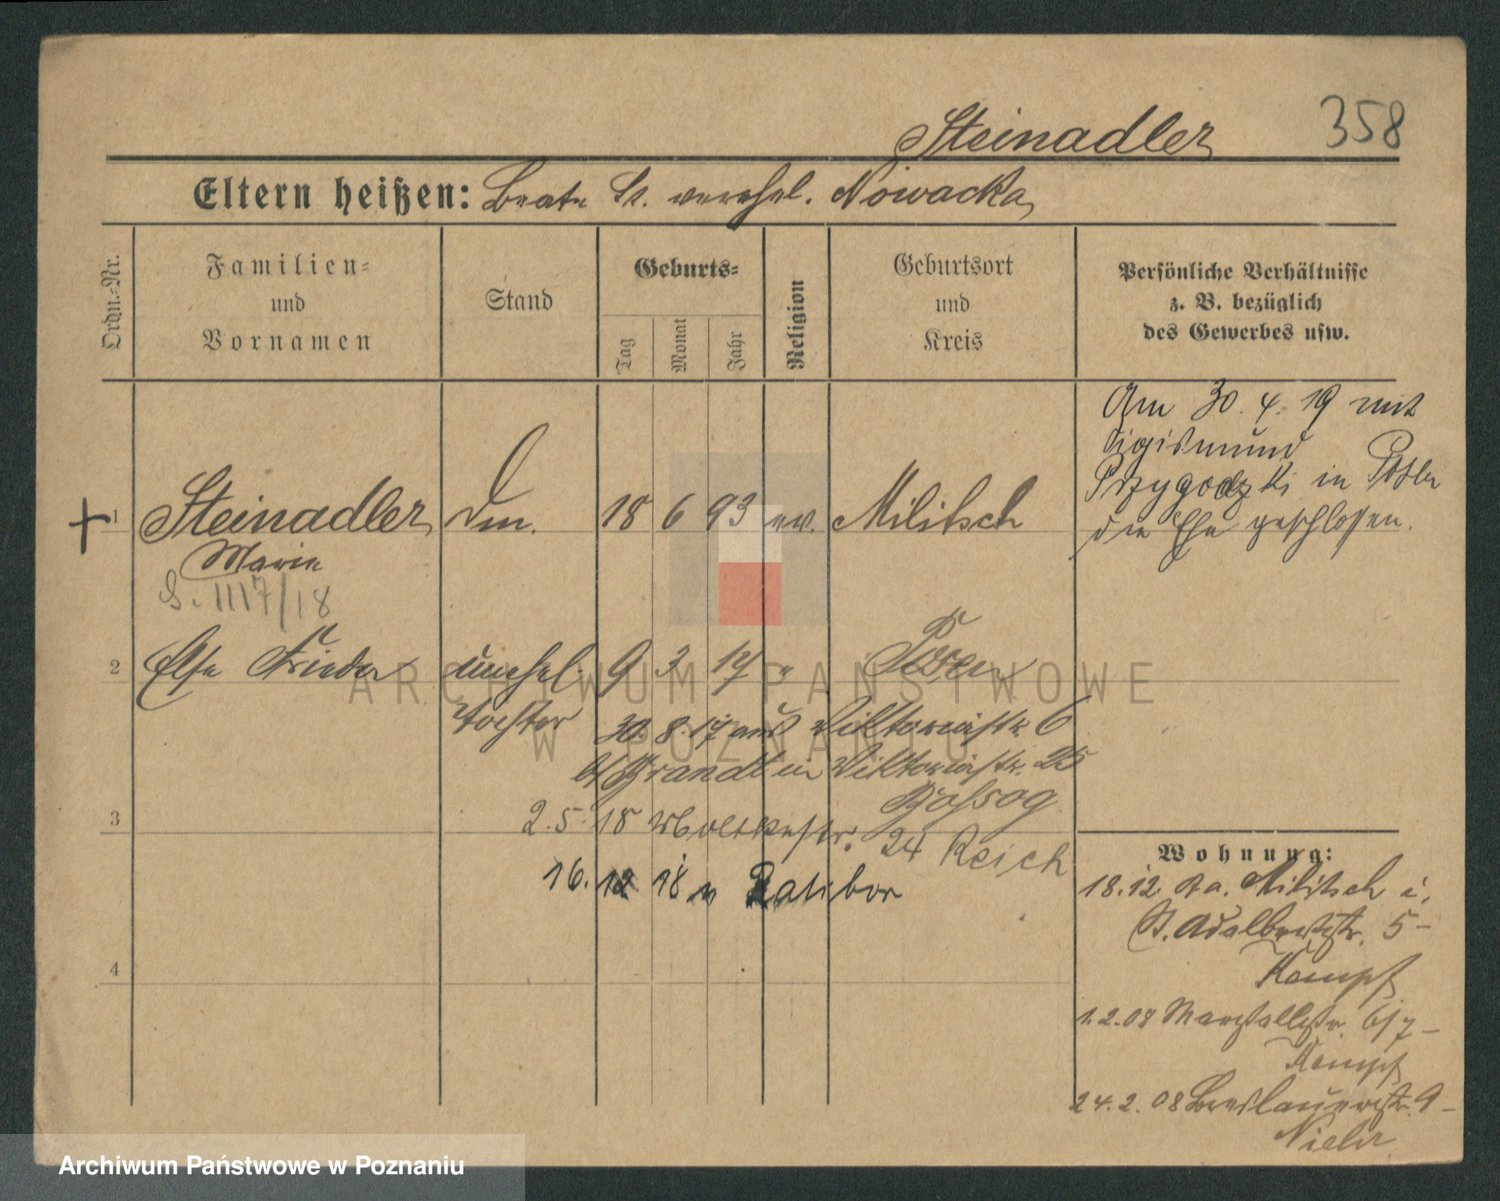 Steinadler 358
Eltern heißen: Beate St. verehel. Nowacka
Ordn.-Nr.
Familien-
und
Vornamen
Stand
Geburts-
Tag
Monat
Jahr
Religion
Geburtsort
und
Kreis
Persönliche Verhältnisse
z. B. bezüglich
des Gewerbes usw.
Am 30. 4. 19 mit
Sigismund
Przygodzki in Posen
die Ehe geschlossen.
1 Steinadler 18 6 93 ev. Militsch
Marie
S. 1117/18
2 Else Frieda unehel. 9 3 17 " Posen
Tochter
30. 8. 17 aus Viktoriastr. 6
b/ Brandt in Viktoriastr. 25
3
2. 5. 18 Moltkestr. 24 Reich
16. 12 18 n Ratibor
4
Wohnung:
18. 12. Militsch i.
St. Adalbertstr. 5 -
Kempf
1. 2. 08 Marstallstr. 6/7 -
Kempf
24. 2. 08 Breslauerstr. 9 -
ARCHIWUM PAŃSTWOWE
W POZNANIU
Archiwum Państwowe w Poznaniu